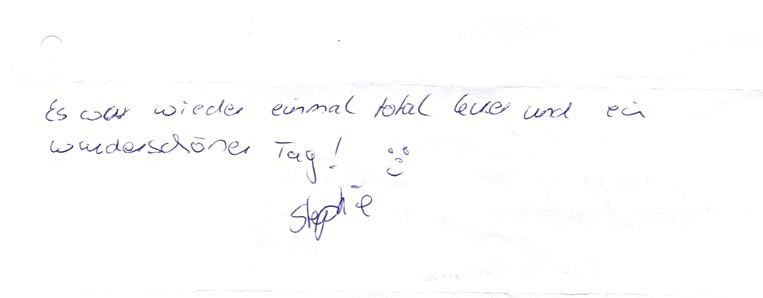 Es war wieder einmal total lecker und ein
wunderschöner Tag!